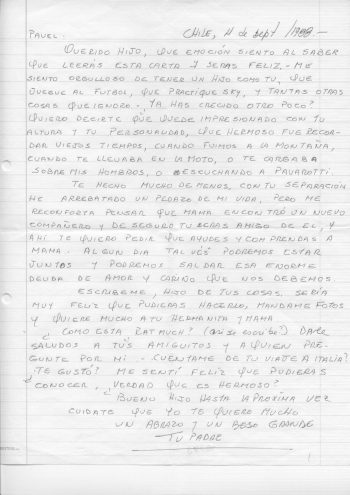 PAUEL.
CHILE, 4 de sept /1988.-
QUERIDO HIJO, QUE EMOCIÓN SIENTO AL SABER
QUE LEERÁS ESTA CARTA Y SERAS FELIZ.- ME
SIENTO ORGULLOSO DE TENER UN HIJO COMO TU, QUE
JUEGUE AL FUTBOL, QUE PRACTIQUE SKY, Y TANTAS OTRAS
COSAS QUE IGNORO.- YA HAS CRECIDO OTRO POCO?
QUIERO DECIRTE QUE QUEDE IMPRESIONADO CON TU
ALTURA Y TU PERSONALIDAD, QUE HERMOSO FUE RECOR-
DAR VIEJOS TIEMPOS, CUANDO FUIMOS A LA MONTAÑA,
CUANDO TE LLEVABA EN LA MOTO, O TE CARGABA
SOBRE MIS HOMBROS, O ESCUCHANDO A PAVAROTTI.
TE HECHO MUCHO DE MENOS, CON TU SEPARACIÓN
HE ARREBATADO UN PEDAZO DE MI VIDA, PERO ME
RECONFORTA PENSAR QUE MAMA ENCONTRÓ UN NUEVO
COMPAÑERO Y DE SEGURO TU SERAS AMIGO DE EL, Y
AHI TE QUIERO PEDIR QUE AYUDES Y COMPRENDAS A
MAMA. ALGUN DIA TAL VES PODREMOS ESTAR
JUNTOS Y PODREMOS SALDAR ESA ENORME
DEUDA DE AMOR Y CARIÑO QUE NOS DEBEMOS.
ESCRIBEME, HIJO DE TUS COSAS, SERÍA
MUY FELIZ QUE PUDIERAS HACERLO, MANDAME FOTOS
Y QUIERE MUCHO A TU HERMANITA Y MAMA
¿COMO ESTA RATMUCH? (así se escribe?) DALE
SALUDOS A TUS AMIGUITOS Y A QUIEN PRE-
GUNTE POR MI.- CUENTAME DE TU VIAJE A ITALIA?
¿TE GUSTÓ? ME SENTÍ FELIZ QUE PUDIERAS
CONOCER, ¿VERDAD QUE ES HERMOSO?
BUENO HIJO HASTA LA PROXIMA VEZ
CUIDATE QUE YO TE QUIERO MUCHO
UN ABRAZO Y UN BESO GRANDE
TU PADRE